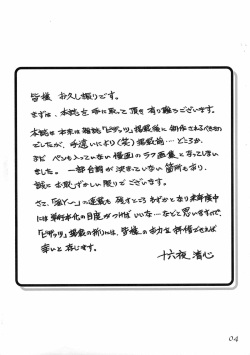 皆様 お久し振りです。
まずは、本誌を手に取って頂き有り難うございます。
本誌は本来は雑誌「ピザッツ」掲載後に制作されるべきもの
でしたが、手違いにより(笑)掲載前…どころか、
まだ ペンも入っていない漫画のラフ画集となってしまい
ました。 一部台詞が決まていない箇所もあり、
誠にお恥ずかしい限りでございます。
さて、「の連載も 残すところ わずかとなり来年度中
には単行本化の目度がつけばいいな…などと思いますので、
「ピザッツ」掲載の折りには、皆様のお力を拝借できれば
幸いと存じます。
十六夜 清心
04